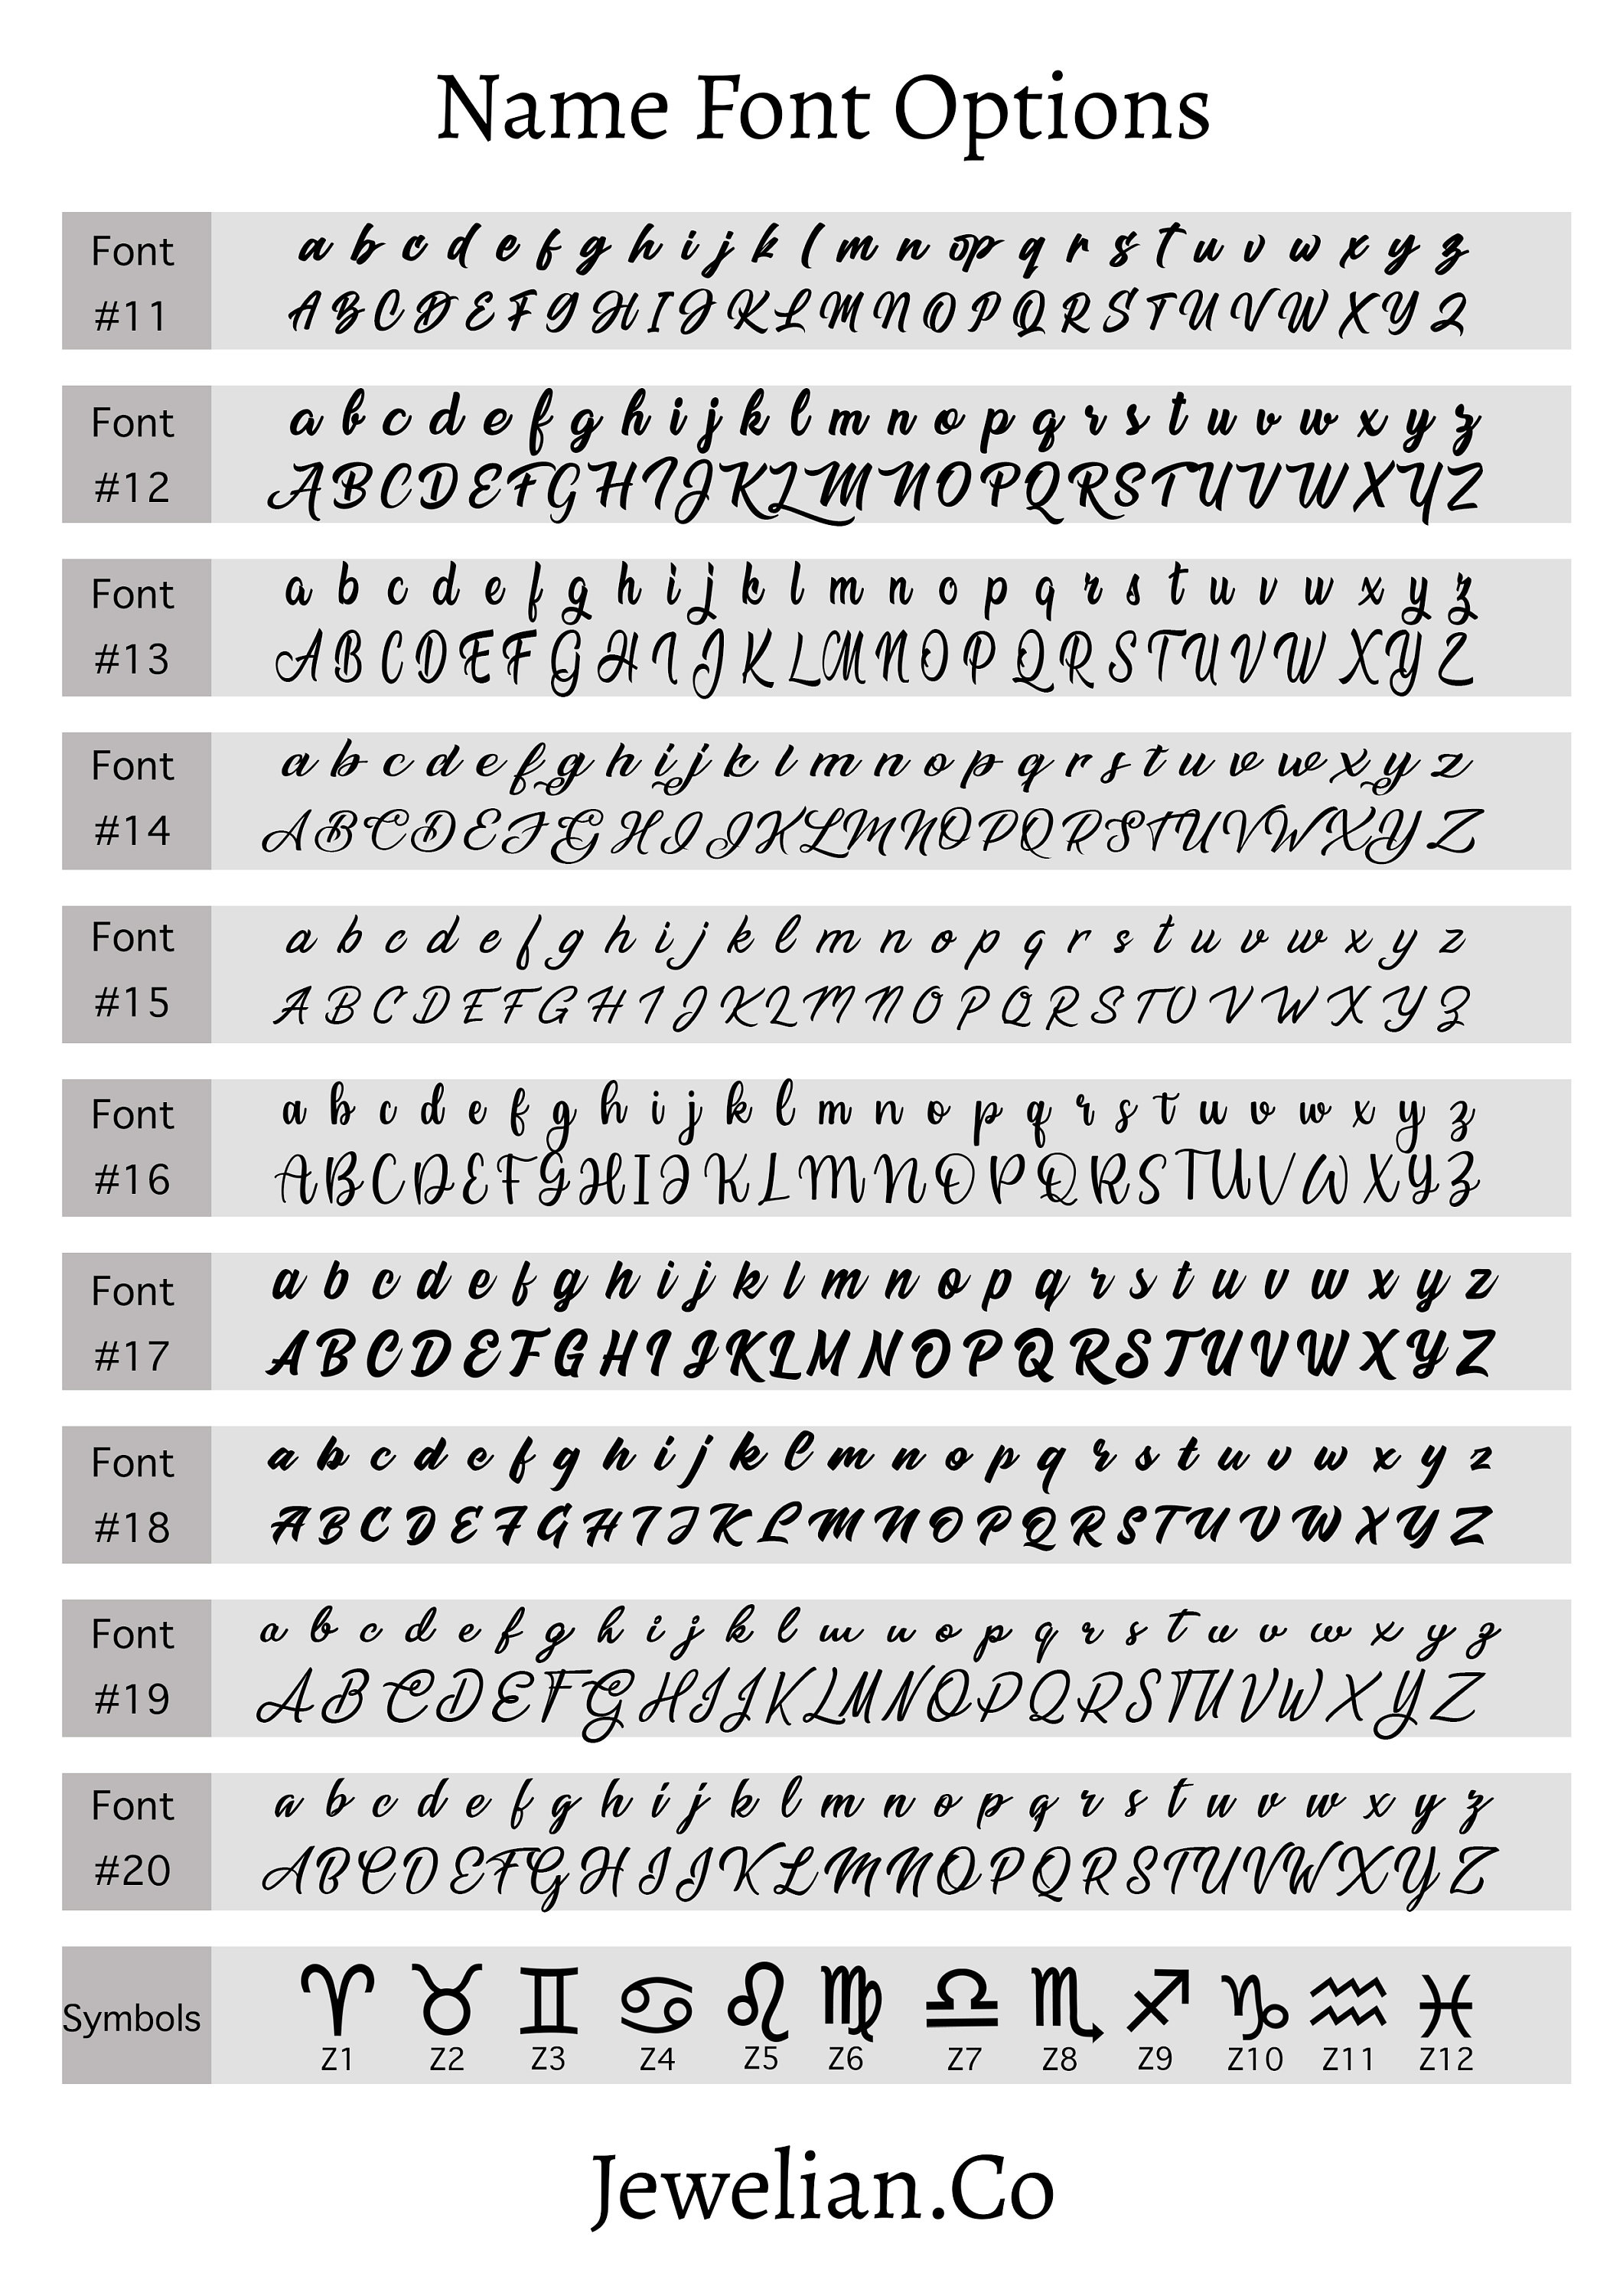 Name Font Options
Font
#11
a b c d e f g h i j k l m n o p q r s t u v w x y z
A B C D E F G H I J K L M N O P Q R S T U V W X Y Z
Font
#12
a b c d e f g h i j k l m n o p q r s t u v w x y z
A B C D E F G H I J K L M N O P Q R S T U V W X Y Z
Font
#13
a b c d e f g h i j k l m n o p q r s t u v w x y z
A B C D E F G H I J K L M N O P Q R S T U V W X Y Z
Font
#14
a b c d e f g h i j k l m n o p q r s t u v w x y z
A B C D E F G H I J K L M N O P Q R S T U V W X Y Z
Font
#15
a b c d e f g h i j k l m n o p q r s t u v w x y z
A B C D E F G H I J K L M N O P Q R S T U V W X Y Z
Font
#16
a b c d e f g h i j k l m n o p q r s t u v w x y z
A B C D E F G H I J K L M N O P Q R S T U V W X Y Z
Font
#17
a b c d e f g h i j k l m n o p q r s t u v w x y z
A B C D E F G H I J K L M N O P Q R S T U V W X Y Z
Font
#18
a b c d e f g h i j k l m n o p q r s t u v w x y z
A B C D E F G H I J K L M N O P Q R S T U V W X Y Z
Font
#19
a b c d e f g h i j k l m n o p q r s t u v w x y z
A B C D E F G H I J K L M N O P Q R S T U V W X Y Z
Font
#20
a b c d e f g h i j k l m n o p q r s t u v w x y z
A B C D E F G H I J K L M N O P Q R S T U V W X Y Z
Symbols
♈ ♉ ♊ ♋ ♌ ♍ ♎ ♏ ♐ ♑ ♒ ♓
Z1 Z2 Z3 Z4 Z5 Z6 Z7 Z8 Z9 Z10 Z11 Z12
Jewelian.Co